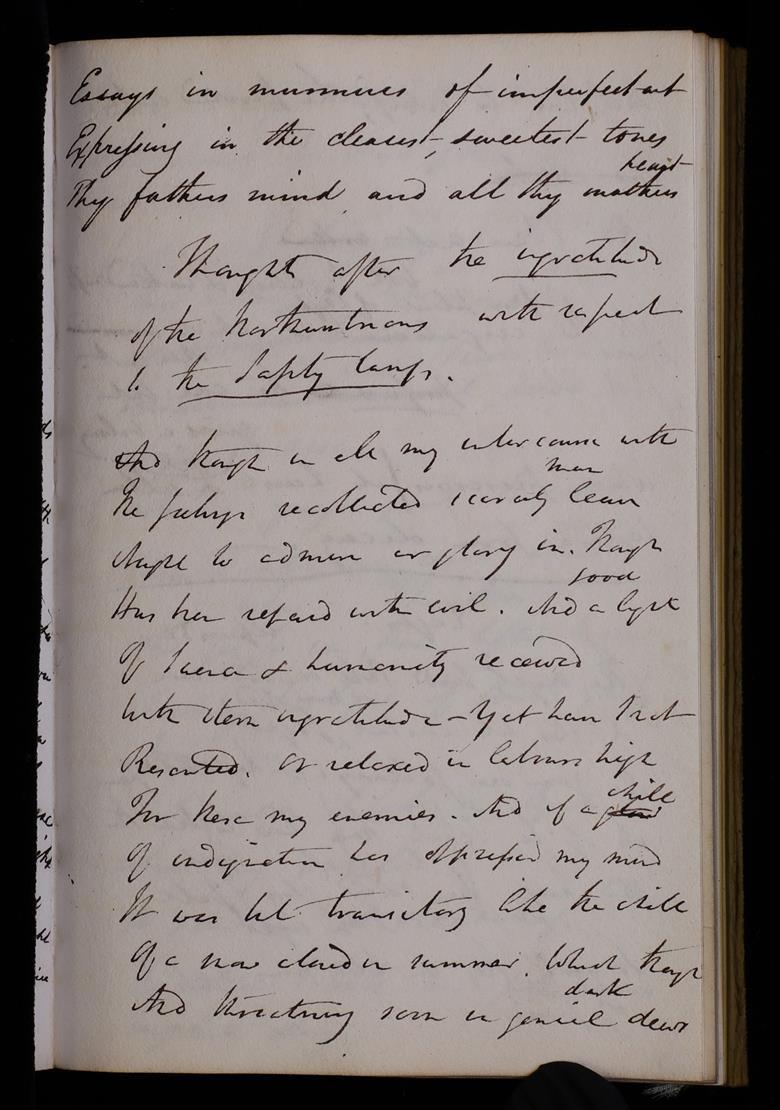 Essays in murmurs of imperfect art
Expressing in the clearest, sweetest tones
Thy fathers mind and all thy mothers
heart
Thoughts after the ingratitude
of the Northumbrians with respect
to the Safety lamp.
And though in all my intercourse with
man
The feelings recollected scarcely leave
Aught to admire or glory in. Though
good
Has been repaid with evil. And a light
Of science & humanity received
With stern ingratitude – Yet have I not
Resented. Or relaxed in labours high
For these my enemies. And if a
chill
Of indignation has oppressed my mind
It was but transitory like the chill
Of a snow cloud in summer. Which though
dark
And threatening soon in genial dews